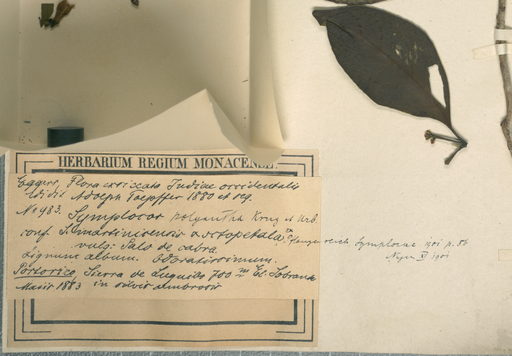 HERBARIUM REGIUM MONACENSE.
Eggers, Flora exsiccata Indiae occidentalis
edidit Adolph Toepffer 1880 et seq.
No 983. Symplocos polyantha Krug et Urb.
conf. S. martinicensis v. octopetala
vulg. Palo de cabra
Lignum album. Odoratissimum.
Portorico, Sierra de Luquillo 700 m
Maio 1883 in silvis
Symplocac 1901 p.
1901